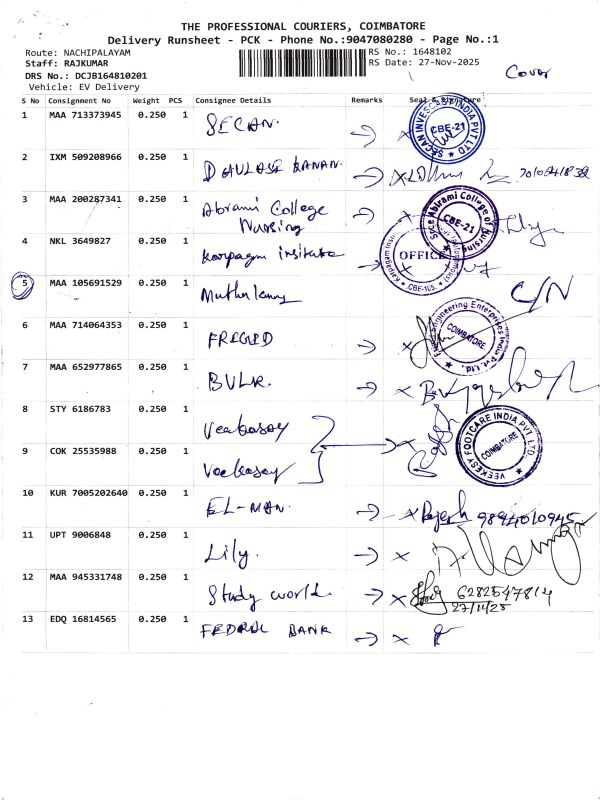 THE PROFESSIONAL COURIERS, COIMBATORE
Delivery Runsheet - PCK - Phone No.:9047080280 - Page No.:1
Route: NACHIPALAYAM
RS No.: 1648102
Staff: RAJKUMAR
RS Date: 27-Nov-2025
DRS No.: DCJB164810201
Cover
Vehicle: EV Delivery
S No Consignment No Weight PCS Consignee Details Remarks Seal & Signature
1 MAA 713373945 0.250 1 SECAN. SECAN INVESCAST INDIA PVT LTD CBE-21
2 IXM 509208966 0.250 1
3 MAA 200287341 0.250 1 Abrami College Nursing Sree Abirami College of Nursing CBE-21
4 NKL 3649827 0.250 1 Karpagam OFFICE CBE-105.
5 MAA 105691529 0.250 1 C/N
6 MAA 714064353 0.250 1 Engineering Enterprises India Pvt. Ltd. COIMBATORE
7 MAA 652977865 0.250 1 BULK.
8 STY 6186783 0.250 1 Veekasay
9 COK 25535988 0.250 1 Veekasay VEEKESY FOOTCARE INDIA PVT LTD COIMBATORE
10 KUR 7005202640 0.250 1 EL-MAN. Rajesh 9894010945
11 UPT 9006848 0.250 1 Lily.
12 MAA 945331748 0.250 1 Study world 27/11/25
13 EDQ 16814565 0.250 1 FEDRAL BANK